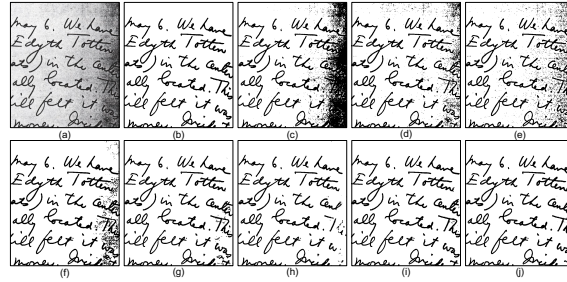 may 6. We have
Edyth Totten
in the
ally located. Th
ill felt it was
money
(a)
may 6. We have
Edyth Totten
in the
ally located. Th
ill felt it was
money
(b)
may 6. We have
Edyth Totten
in the
ally located.
ill felt it
money
(c)
may 6. We have
Edyth Totten
in the
ally located. Th
ill felt it was
money
(d)
may 6. We have
Edyth Totten
in the
ally located. Th
ill felt it was
money
(e)
may 6. We have
Edyth Totten
in the
ally located. Th
ill felt it was
money
(f)
may 6. We have
Edyth Totten
in the
ally located. Th
ill felt it was
money
(g)
may 6. We have
Edyth Totten
in the
ally located.
ill felt it
money
(h)
may 6. We have
Edyth Totten
in the
ally located. Th
ill felt it was
money
(i)
may 6. We have
Edyth Totten
in the
ally located. Th
ill felt it was
money
(j)